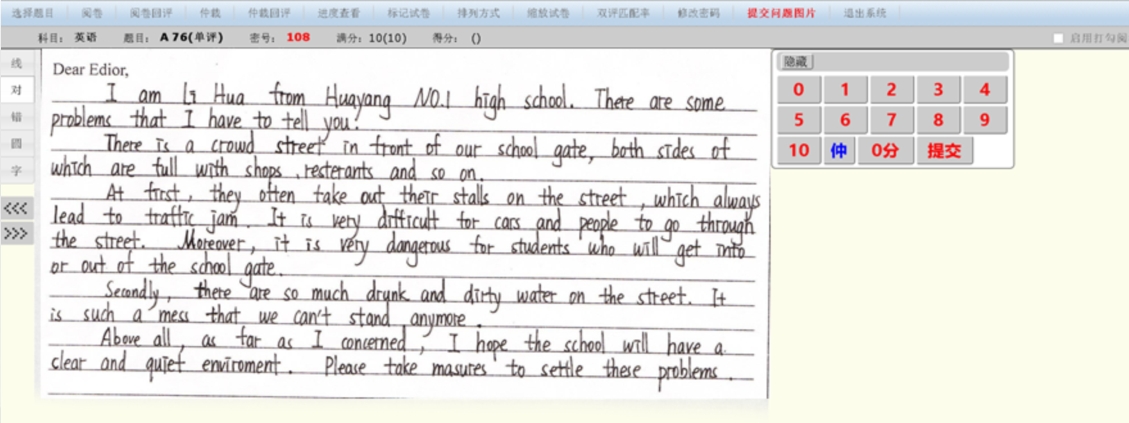 选择题目 阅卷 阅卷回评 仲裁 仲裁回评 进度查看 标记试卷 排列方式 缩放试卷 双评匹配率 修改密码 提交问题图片 退出系统
科目: 英语 题目: A 76(单评) 密号: 108 满分: 10(10) 得分: () 启用打勾阅
线
对
错
圆
字
<<<
>>>
Dear Edior,
I am Li Hua from Huayang NO.1 high school. There are some
problems that I have to tell you.
There is a crowd street in front of our school gate, both sides of
which are full with shops , resterants and so on.
At first, they often take out their stalls on the street , which always
lead to traffic jam. It is very difficult for cars and people to go through
the street. Moreover, it is very dangerous for students who will get into
or out of the school gate.
Secondly, there are so much drunk and dirty water on the street. It
is such a mess that we can't stand anymore .
Above all, as far as I concerned, I hope the school will have a
clear and quief enviroment. Please take masures to settle these problems .
隐藏
0 1 2 3 4
5 6 7 8 9
10 仲 0分 提交